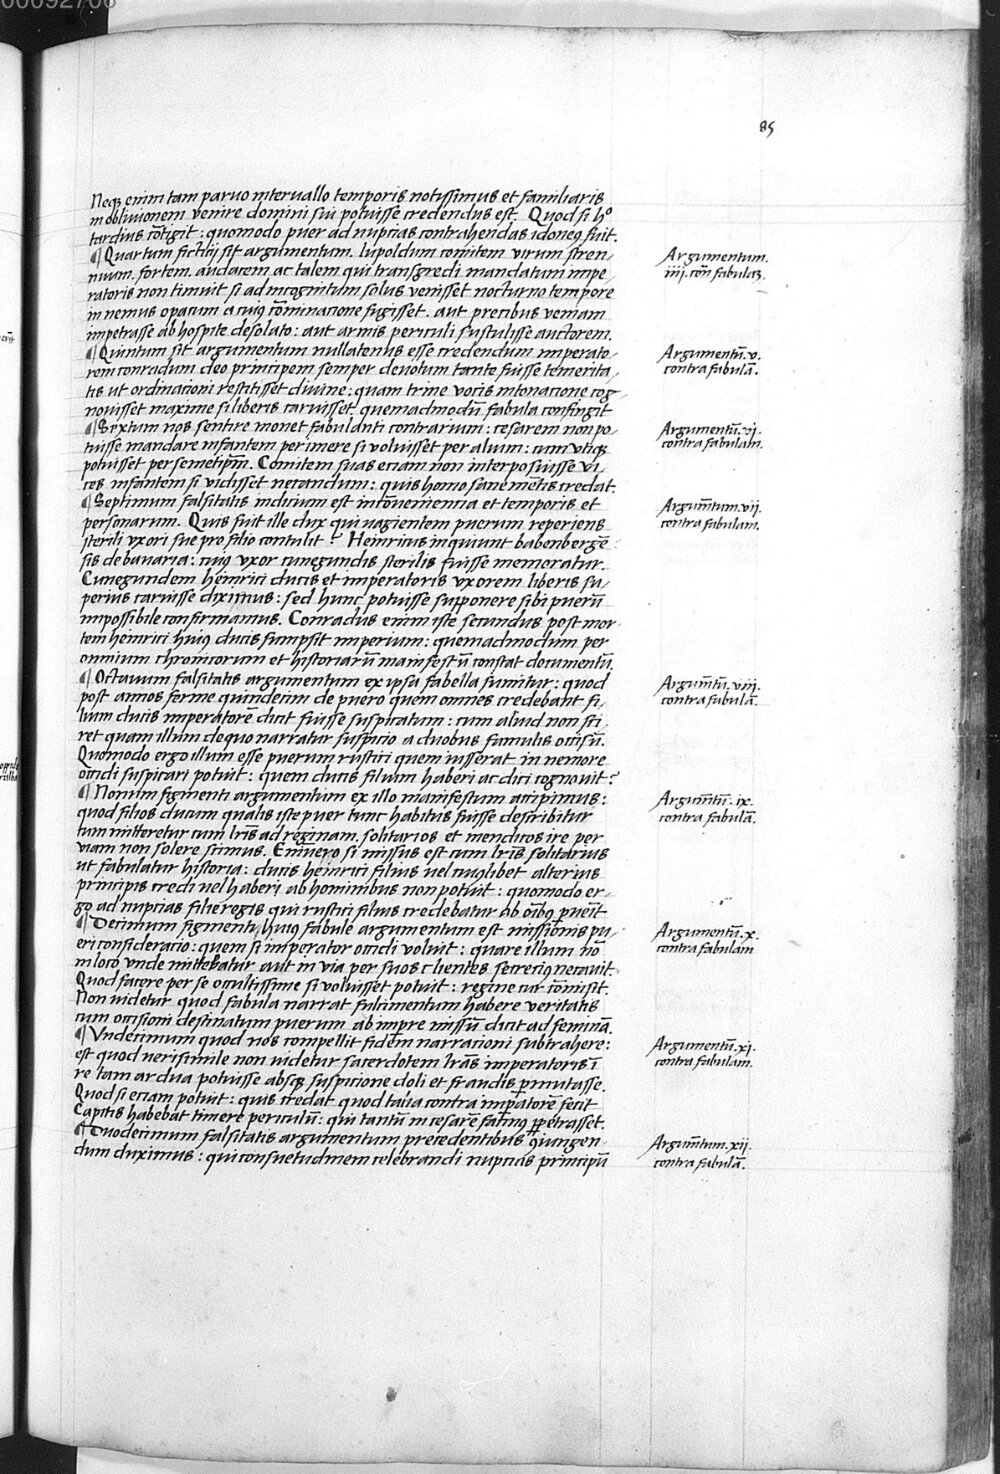 00092706
85
Neqꝫ enim tam paruo interuallo temporis notissimus et familiaris
in obliuionem venire domini sui potuisse credendus est. Quod si hᵒ
tardius cōtigit : quomodo puer ad nuptias contrahendas idoneꝰ fuit.
¶ Quartum fictitij sit argumentum. lupoldum comitem virum stren/
nuum. fortem. audacem ac talem qui transgredi mandatum impe/
ratoris non timuit si ad incognitum solus venisset nocturno tempore
in nemus opacum a cuiꝰ cōminacione fugisset. aut precibus veniam
impetrasse ab hospite desolato : aut armis periculi sustulisse auctorem.
Argumentum.
iiij. cōn fabulaꝫ.
¶ Quintum sit argumentum nullatenus esse credendum imperato/
rem conradum deo principem semper deuotum tante fuisse temerita/
tis ut ordinacioni restitisset diuine : quam trine vocis intonacione cog/
nouisset maxime si liberis caruisset quemadmodū fabula confingit
Argumentū. v.
contra fabulā.
¶ Sextum nos sentire monet fabulanti contrarium : cesarem non po/
tuisse mandare infantem perimere si voluisset per alium : cum vtiqꝫ
potuisset per semetip̄m. Comitem suas eciam non interposuisse vi/
ces infantem si vidisset necandum : quis homo sane mētis credat.
Argumentū. vi.
contra fabulam.
¶ Septimum falsitatis indicium est incōueniencia et temporis et
personarum. Quis fuit ille dux qui uagientem puerum reperiens
sterili vxori sue pro filio contulit ? Heinricus inquiunt babenbergē/
sis de bauaria : cuiꝰ vxor cunegundis sterilis fuisse memoratur.
Cunegundem heinrici ducis et imperatoris vxorem liberis su/
perius caruisse diximus : sed hunc potuisse supponere sibi puerū
impossibile confirmamus. Conradus enim iste secundus post mor/
tem heinrici huiꝰ ducis sumpsit imperium : quemadmodum per
omnium chronicorum et historiarū manifestū constat documentū.
Argum̄tum. vii.
contra fabulam.
¶ Octauum falsitatis argumentum ex ipsa fabella sumitur : quod
post annos ferme quindecim de puero quem omnes credebant fi/
lium ducis imperatorē dicit fuisse suspicatum : cum aliud non sci/
ret quam illum de quo narratur suspicio a duobus famulis occisū.
Quomodo ergo illum esse puerum rustici quem iusserat in nemore
occidi suspicari potuit : quem ducis filium haberi ac dici cognouit ?
Argum̄tū. viii.
contra fabulā.
¶ Nonum figmenti argumentum ex illo manifestum accipimus :
quod filios ducum qualis iste puer tunc habitus fuisse describitur
cum mitteretur cum lr̄is ad reginam. solitarios et mendicos ire per
viam non solere scimus. Enīuero si missus est cum lr̄is solitarius
ut fabulatur historia : ducis heinrici filius uel cuiuslibet alterius
principis credi uel haberi ab hominibus non potuit : quomodo er/
go ad nuptias filie regis qui rustici filius credebatur ab oībꝰ puēit
Argum̄tū. ix.
contra fabulā.
¶ Decimum figmenti huiꝰ fabule argumentum est missionis pu/
eri consideracio : quem si imperator occidi voluit : quare illum nō
in loco vnde mittebatur aut in via per suos clientes secreciꝰ necauit.
Quod facere per se occultissime si voluisset potuit : regine cur cōmisit.
Non uidetur quod fabula narrat fulcimentum habere veritatis
cum occisioni destinatum puerum ab impre missū dicit ad feminā.
Argumentū. x.
contra fabulam
¶ Vndecimum quod nos compellit fidem narracioni subtrahere :
est quod uerisimile non uidetur sacerdotem lr̄as imperatoris ī
re tam ardua potuisse absqꝫ suspicione doli et fraudis p̄mutasse.
Quod si eciam potuit : quis credat quod talia contra imp̄atorē fecit
Capitis habebat timere periculū : qui tantū in cesarē facinꝰ ꝑpetrasset.
Argumentū. xi.
contra fabulam.
¶ Duodecimum falsitatis argumentum precedentibus ꝯiungen/
dum duximus : qui consuetudinem celebrandi nuptias principū
Argum̄tum. xii.
contra fabulā.